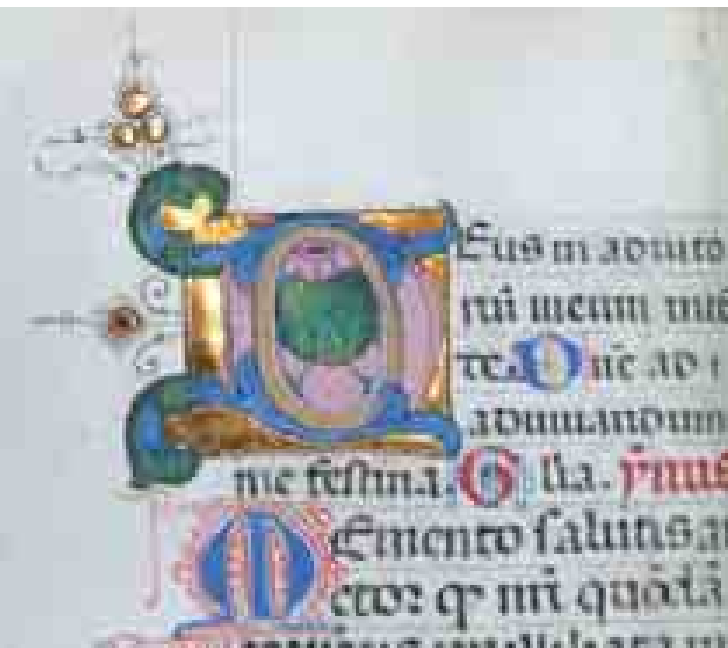 DEus in adiuto
riū meum int
te. Dñe ad
adiuuandum
me festina. Glia. ymnus
MEmento salutis a
ctor qȝ nr̄i quōdā